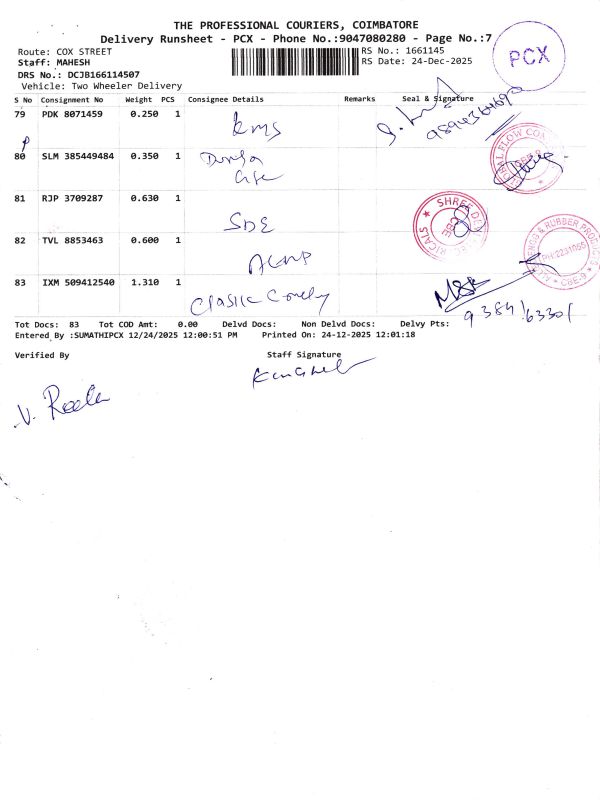 THE PROFESSIONAL COURIERS, COIMBATORE
Delivery Runsheet - PCX - Phone No.:9047080280 - Page No.:7
Route: COX STREET
RS No.: 1661145
Staff: MAHESH
RS Date: 24-Dec-2025
DRS No.: DCJB166114507
Vehicle: Two Wheeler Delivery
PCX
S No Consignment No Weight PCS Consignee Details Remarks Seal & Signature
79 PDK 8071459 0.250 1
kms
80 SLM 385449484 0.350 1
81 RJP 3709287 0.630 1
SDE
82 TVL 8853463 0.600 1
PH:2231055
83 IXM 509412540 1.310 1
Tot Docs: 83 Tot COD Amt: 0.00 Delvd Docs: Non Delvd Docs: Delvy Pts:
Entered By :SUMATHIPCX 12/24/2025 12:00:51 PM Printed On: 24-12-2025 12:01:18
Verified By Staff Signature